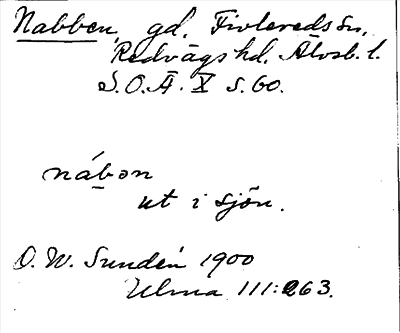 Nabben, gd. Fivlereds sn,
Redvägs hd. Älvsb. l.
S.O.Ä. X s. 60.
nábǝn
ut i sjön.
D. W. Sundén 1900
Ulma 111:263.